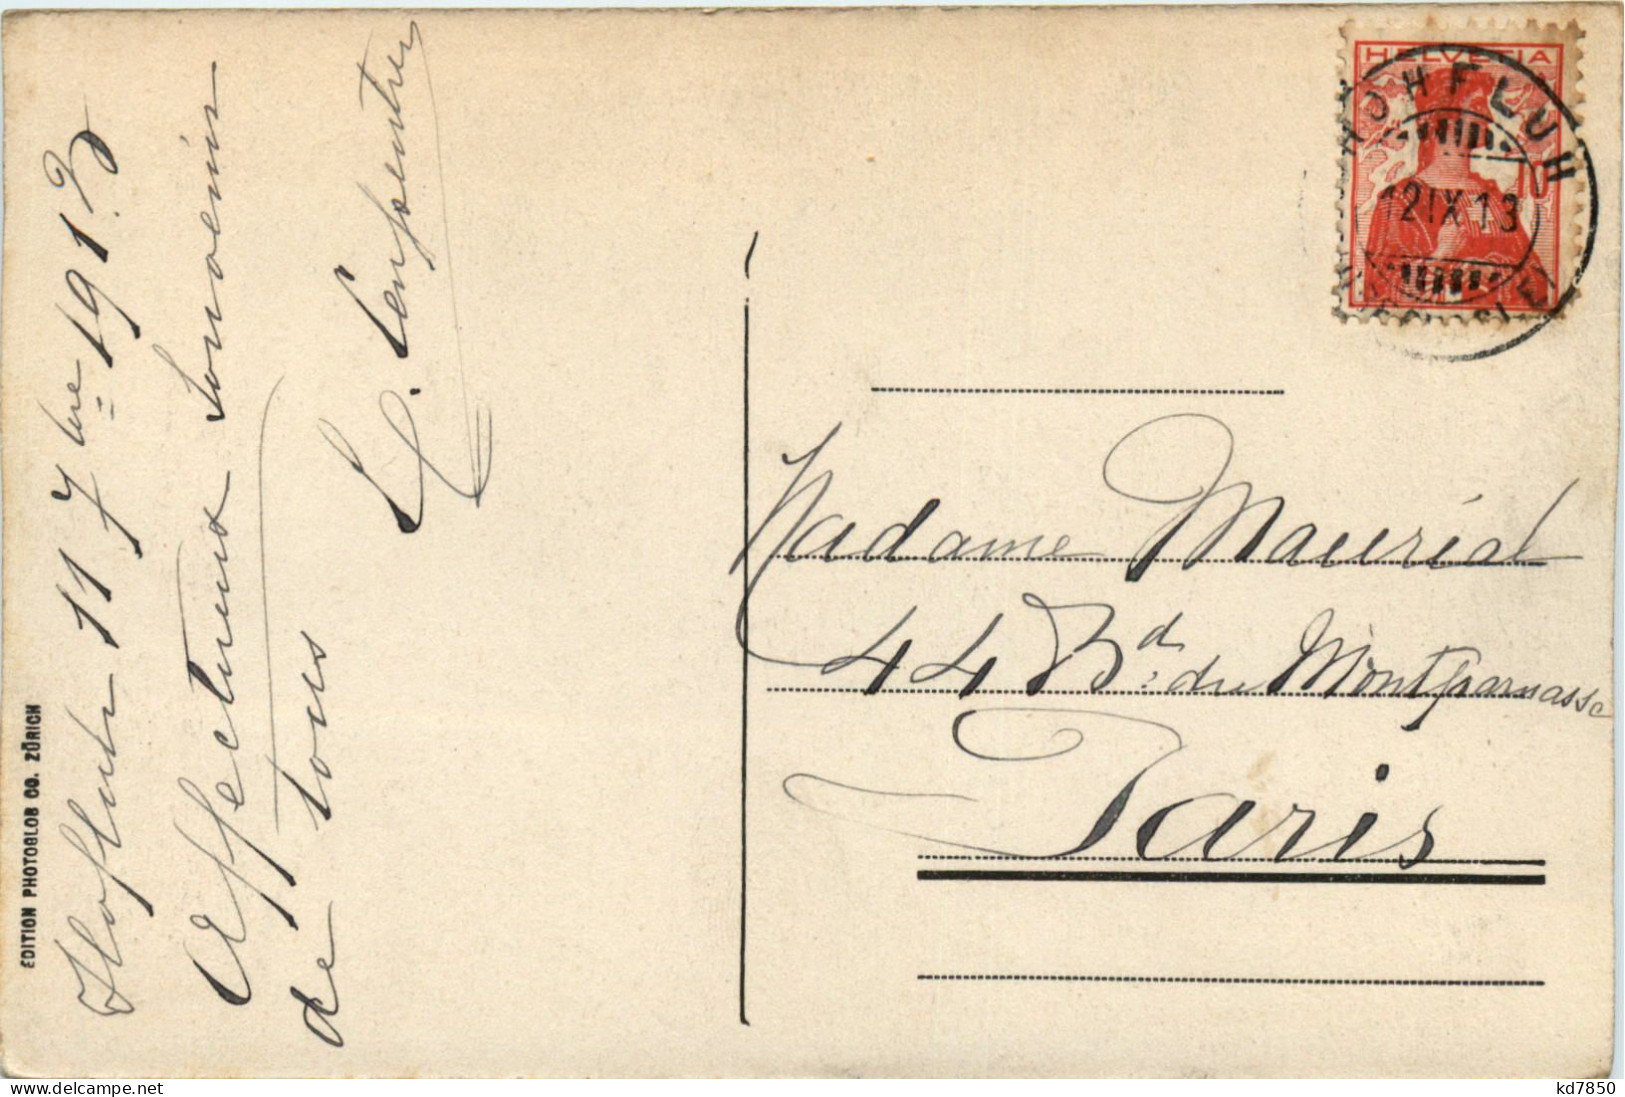 Hofluh 11 7bre 1913
Affectueux Souvenirs
de tous
EDITION PHOTOGLOB CO. ZÜRICH
HELVETIA
HOHFLUH
12 IX 13
Madame Maurial
44 Bd du Montparnasse
Paris
www.delcampe.net
kd7850